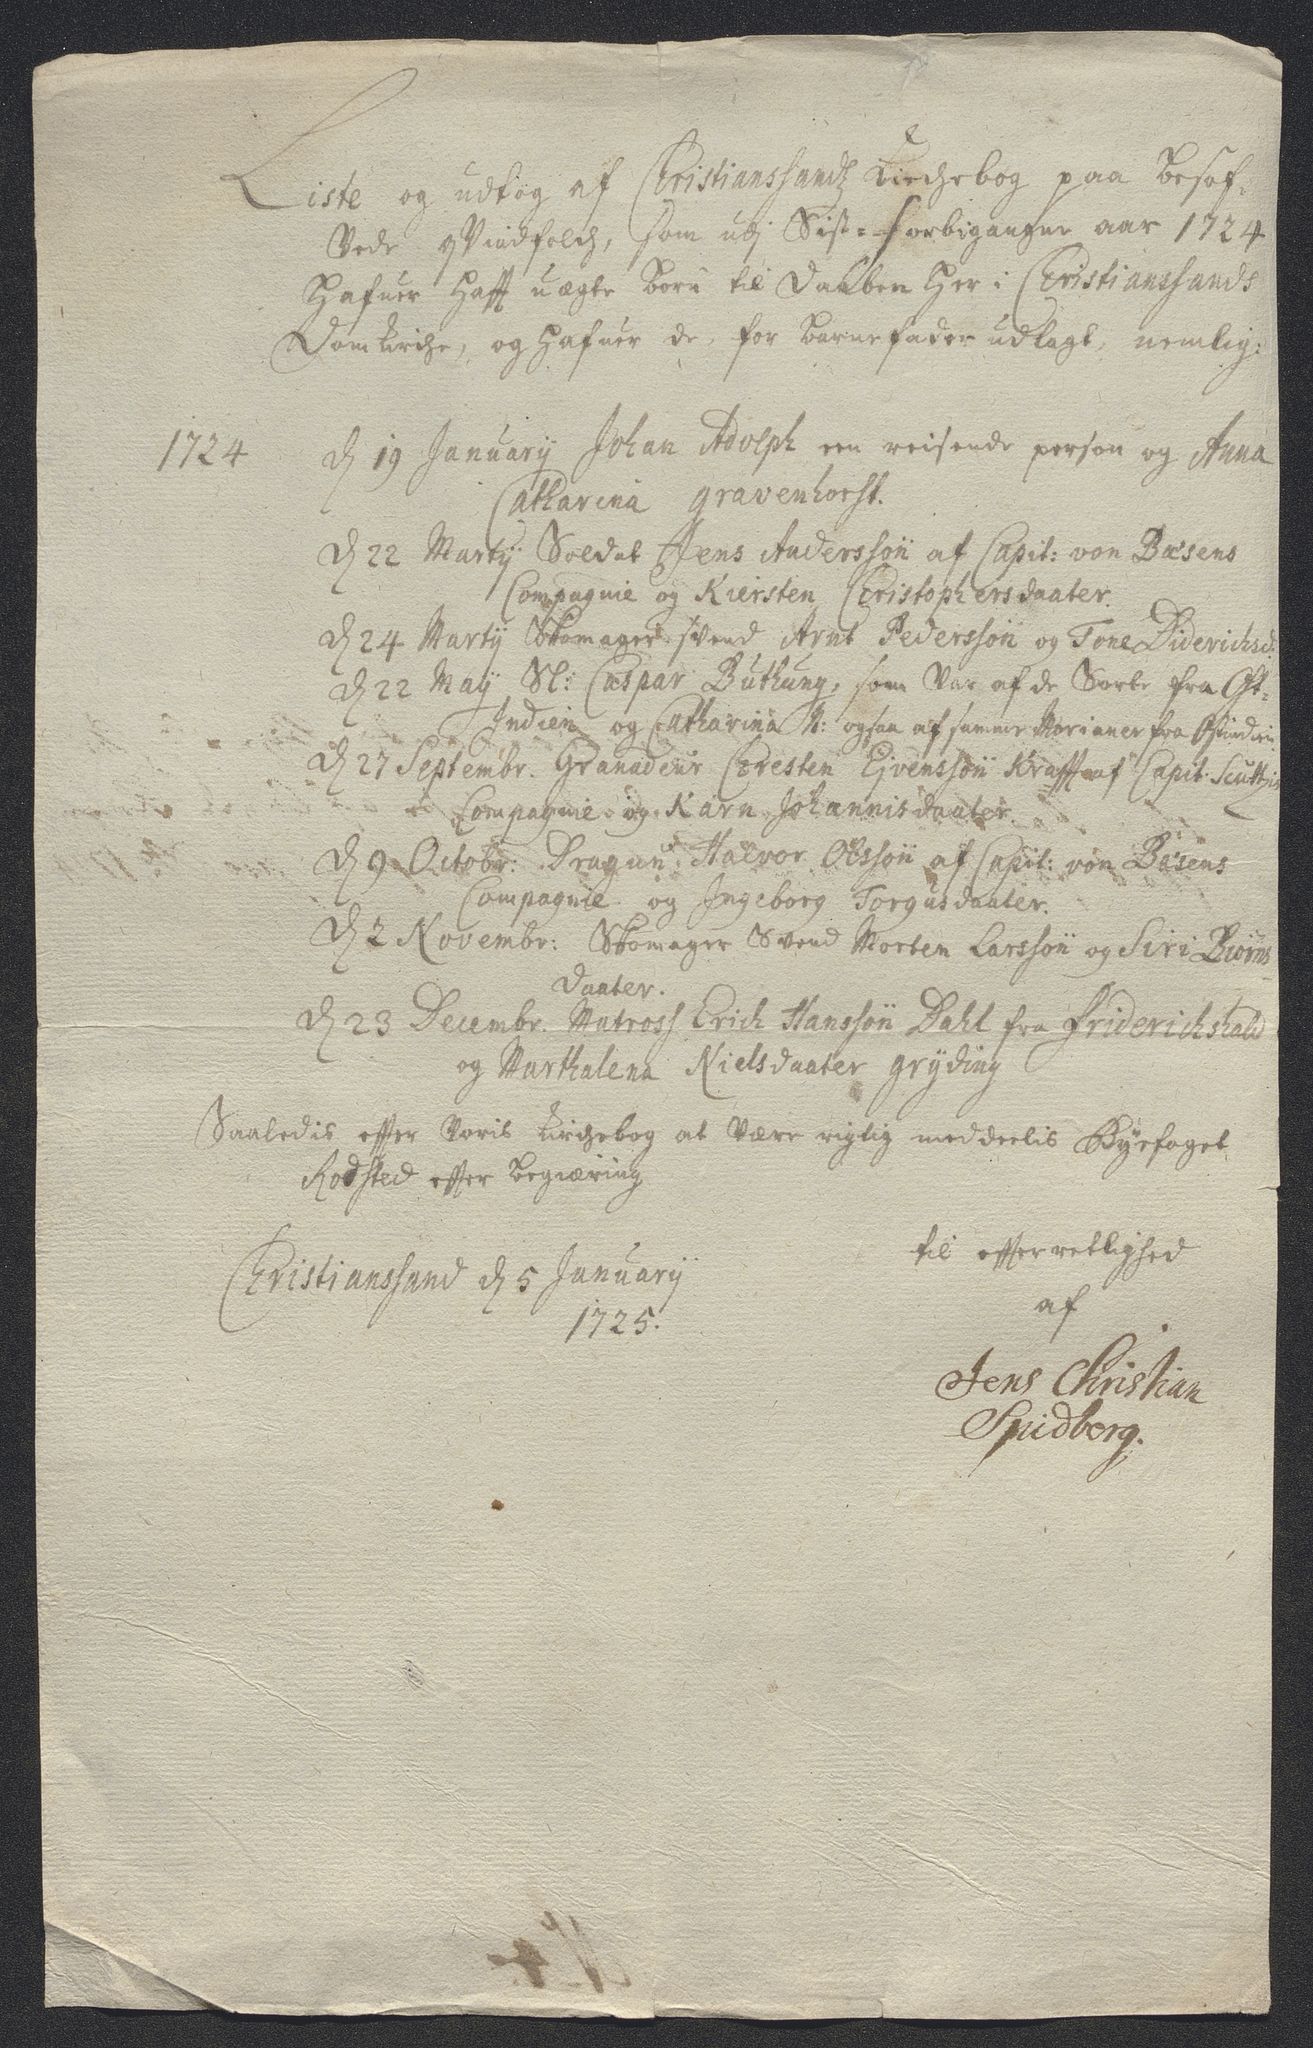 Liste og udtog af Christianssandtz Kirchebog paa besof-
vede qvindfolch, som udj Sist-forbigangne aar 1724
Hafuer Haft uægte børn til Daaben Her i Christianssands
Domkirche, og Hafuer de, for barnefader udlagt, nemlig:
1724 d 19 January Johan Adolph een reisende person og Anna
Catharina gravenhorst.
d 22 Martij Soldat Jens Anderssøn af Capit: von Bæsens
Compagnie og Kiersten Christophersdaater.
d 24 Martij Skomager svend Arnt Pederssøn og Tone Diderichsd:
d 22 Maij Sl: Caspar Buthung, som var af de Sorte fra Ost-
Indien og Catharina N: ogsaa af samme Morianer fra Ostindien
d 27 Septembr. Granadeur Christen Ejvenssøn Krafft af Capit. Scuttzis
Compagnie og Karn Johannisdaater.
d 9 Octobr: Dragun Halvor Olssøn af Capit: von Bæsens
Compagnie og Ingeborg Torgusdaater.
d 2 Novembr: Skomager Svend Morten Larssøn og Siri Biørns
daater.
d 23 Decembr. Matross Erich Hanssøn Dahl fra Friderichshald
og Marthalena Nielsdaater grÿding
Saaledis efter voris kirchebog at være rigtig meddeelis Byefoget
Rodsted efter begiæring
til efterretlighed
Christianssand d 5 January
af
1725.
Jens Christian
Spidberg.